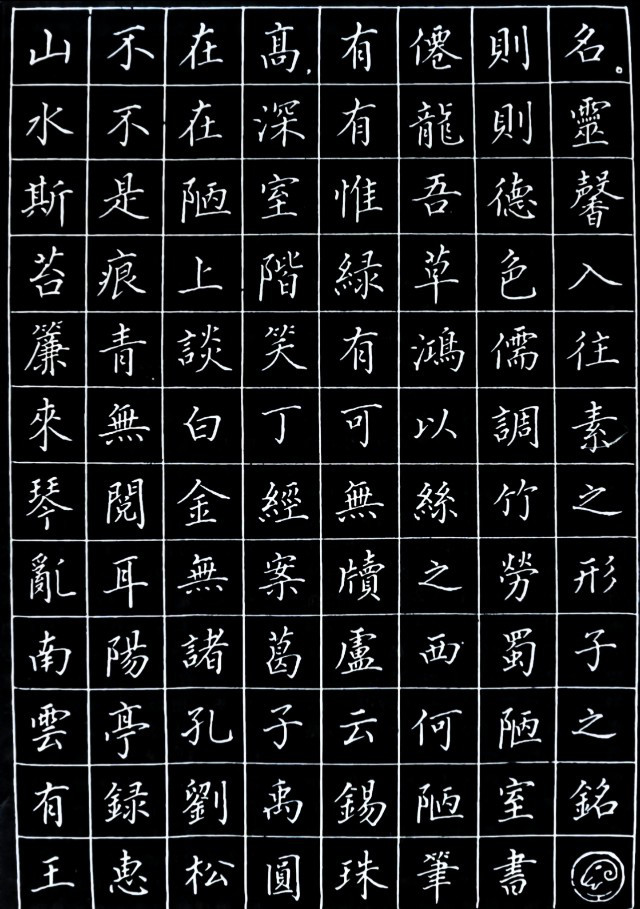 山不在高,有僊則名。
水不在深有龍則靈
斯是陋室惟吾德馨
苔痕上階緑草色入
簾青談笑有鴻儒往
來無白丁可以調素
琴閲金經無絲竹之
亂耳無案牘之勞形
南陽諸葛盧西蜀子
雲亭孔子云何陋之
有録劉禹錫陋室銘
王惠松圓珠筆書